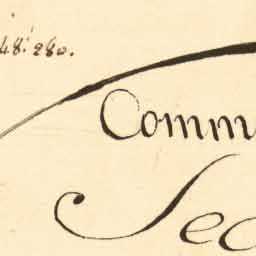 48: 280.
Commu
Sec